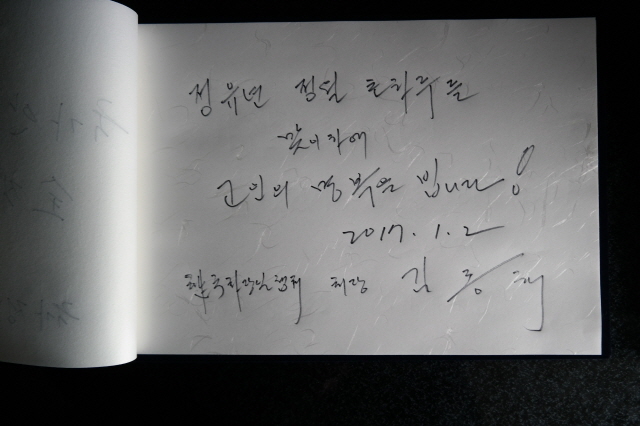 정유년 정월 초하루를
맞이하여
고인의 명복을 빕니다!
2017.1.2
회장 김